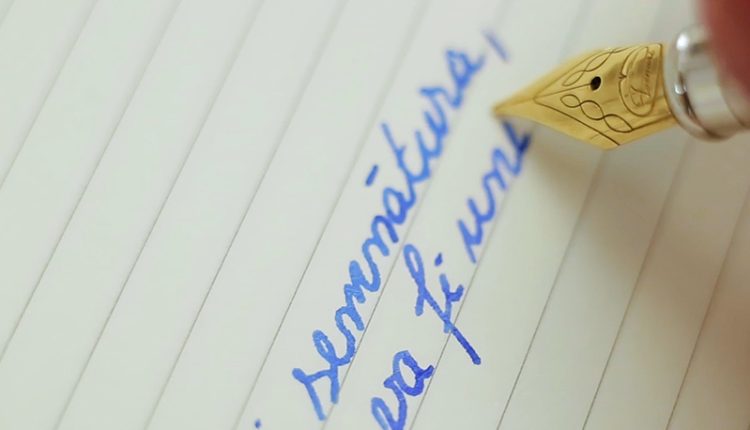 semnătura,
va fi un